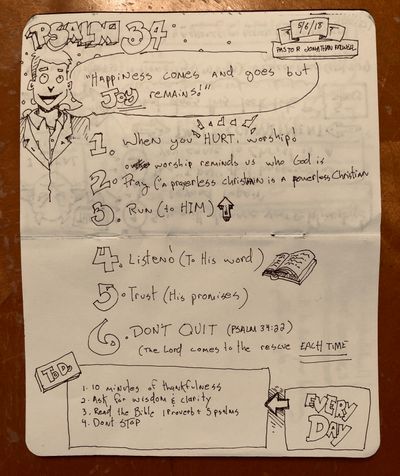 PSALM 34
5/6/18
PASTOR JONATHAN
"HAPPINESS COMES AND GOES BUT
JOY REMAINS!"
1. WHEN YOU HURT, WORSHIP!
WORSHIP REMINDS US WHO GOD IS
2. PRAY ("A PRAYERLESS CHRISTIAN IS A POWERLESS CHRISTIAN
3. RUN (TO HIM)
4. LISTEN! (TO HIS WORD)
5. TRUST (HIS PROMISES)
6. DON'T QUIT (PSALM 34:22)
(THE LORD COMES TO THE RESCUE EACH TIME
TO DO
1. 10 MINUTES OF THANKFULNESS
2. ASK FOR WISDOM & CLARITY
3. READ THE BIBLE 1 PROVERB + 5 PSALMS
4. DON'T STOP
EVERY
DAY